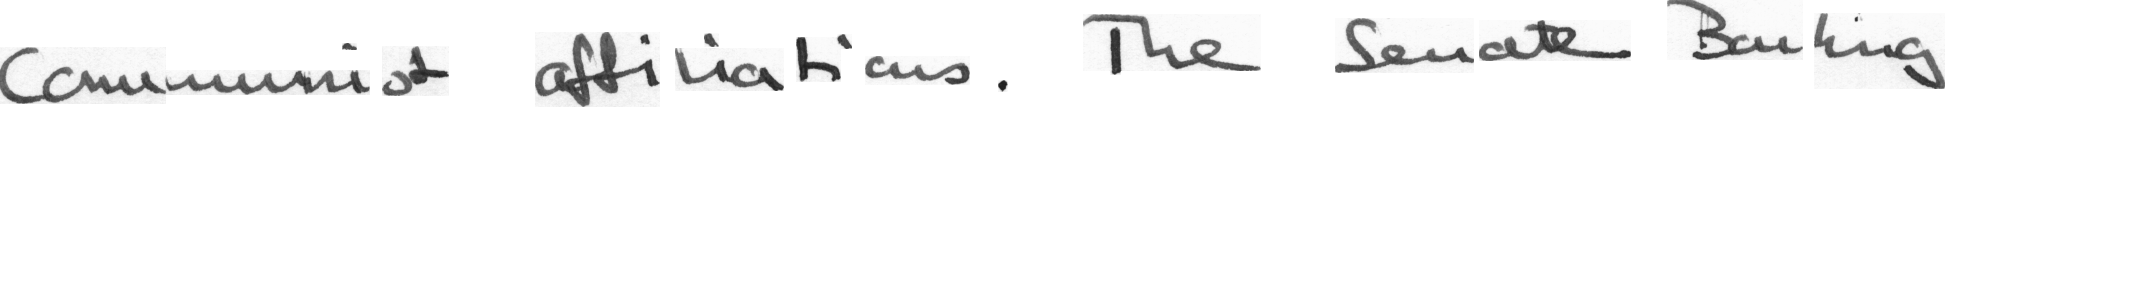 Communist affiliations. The Senate Banking